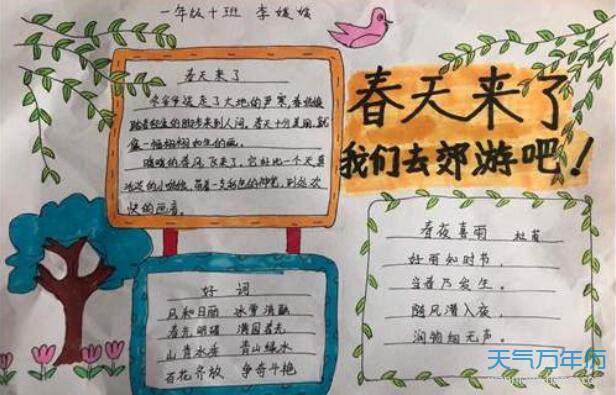 一年级十班 李媛媛
春天来了
冬爷爷送走了大地的严寒，春姑娘
踏着轻盈的脚步来到人间。春天十分美丽，就
像一幅栩栩如生的画。
暖暖的春风飞来了，它好比一个天真
活泼的小姑娘，带着一支彩色的神笔，到处欢
快的画着。
春天来了
我们去郊游吧！
好词
风和日丽 冰雪消融
春光明媚 满园春光
山青水秀 青山绿水
百花齐放 争奇斗艳
春夜喜雨 杜甫
好雨知时节，
当春乃发生。
随风潜入夜，
润物细无声。
天气万年历